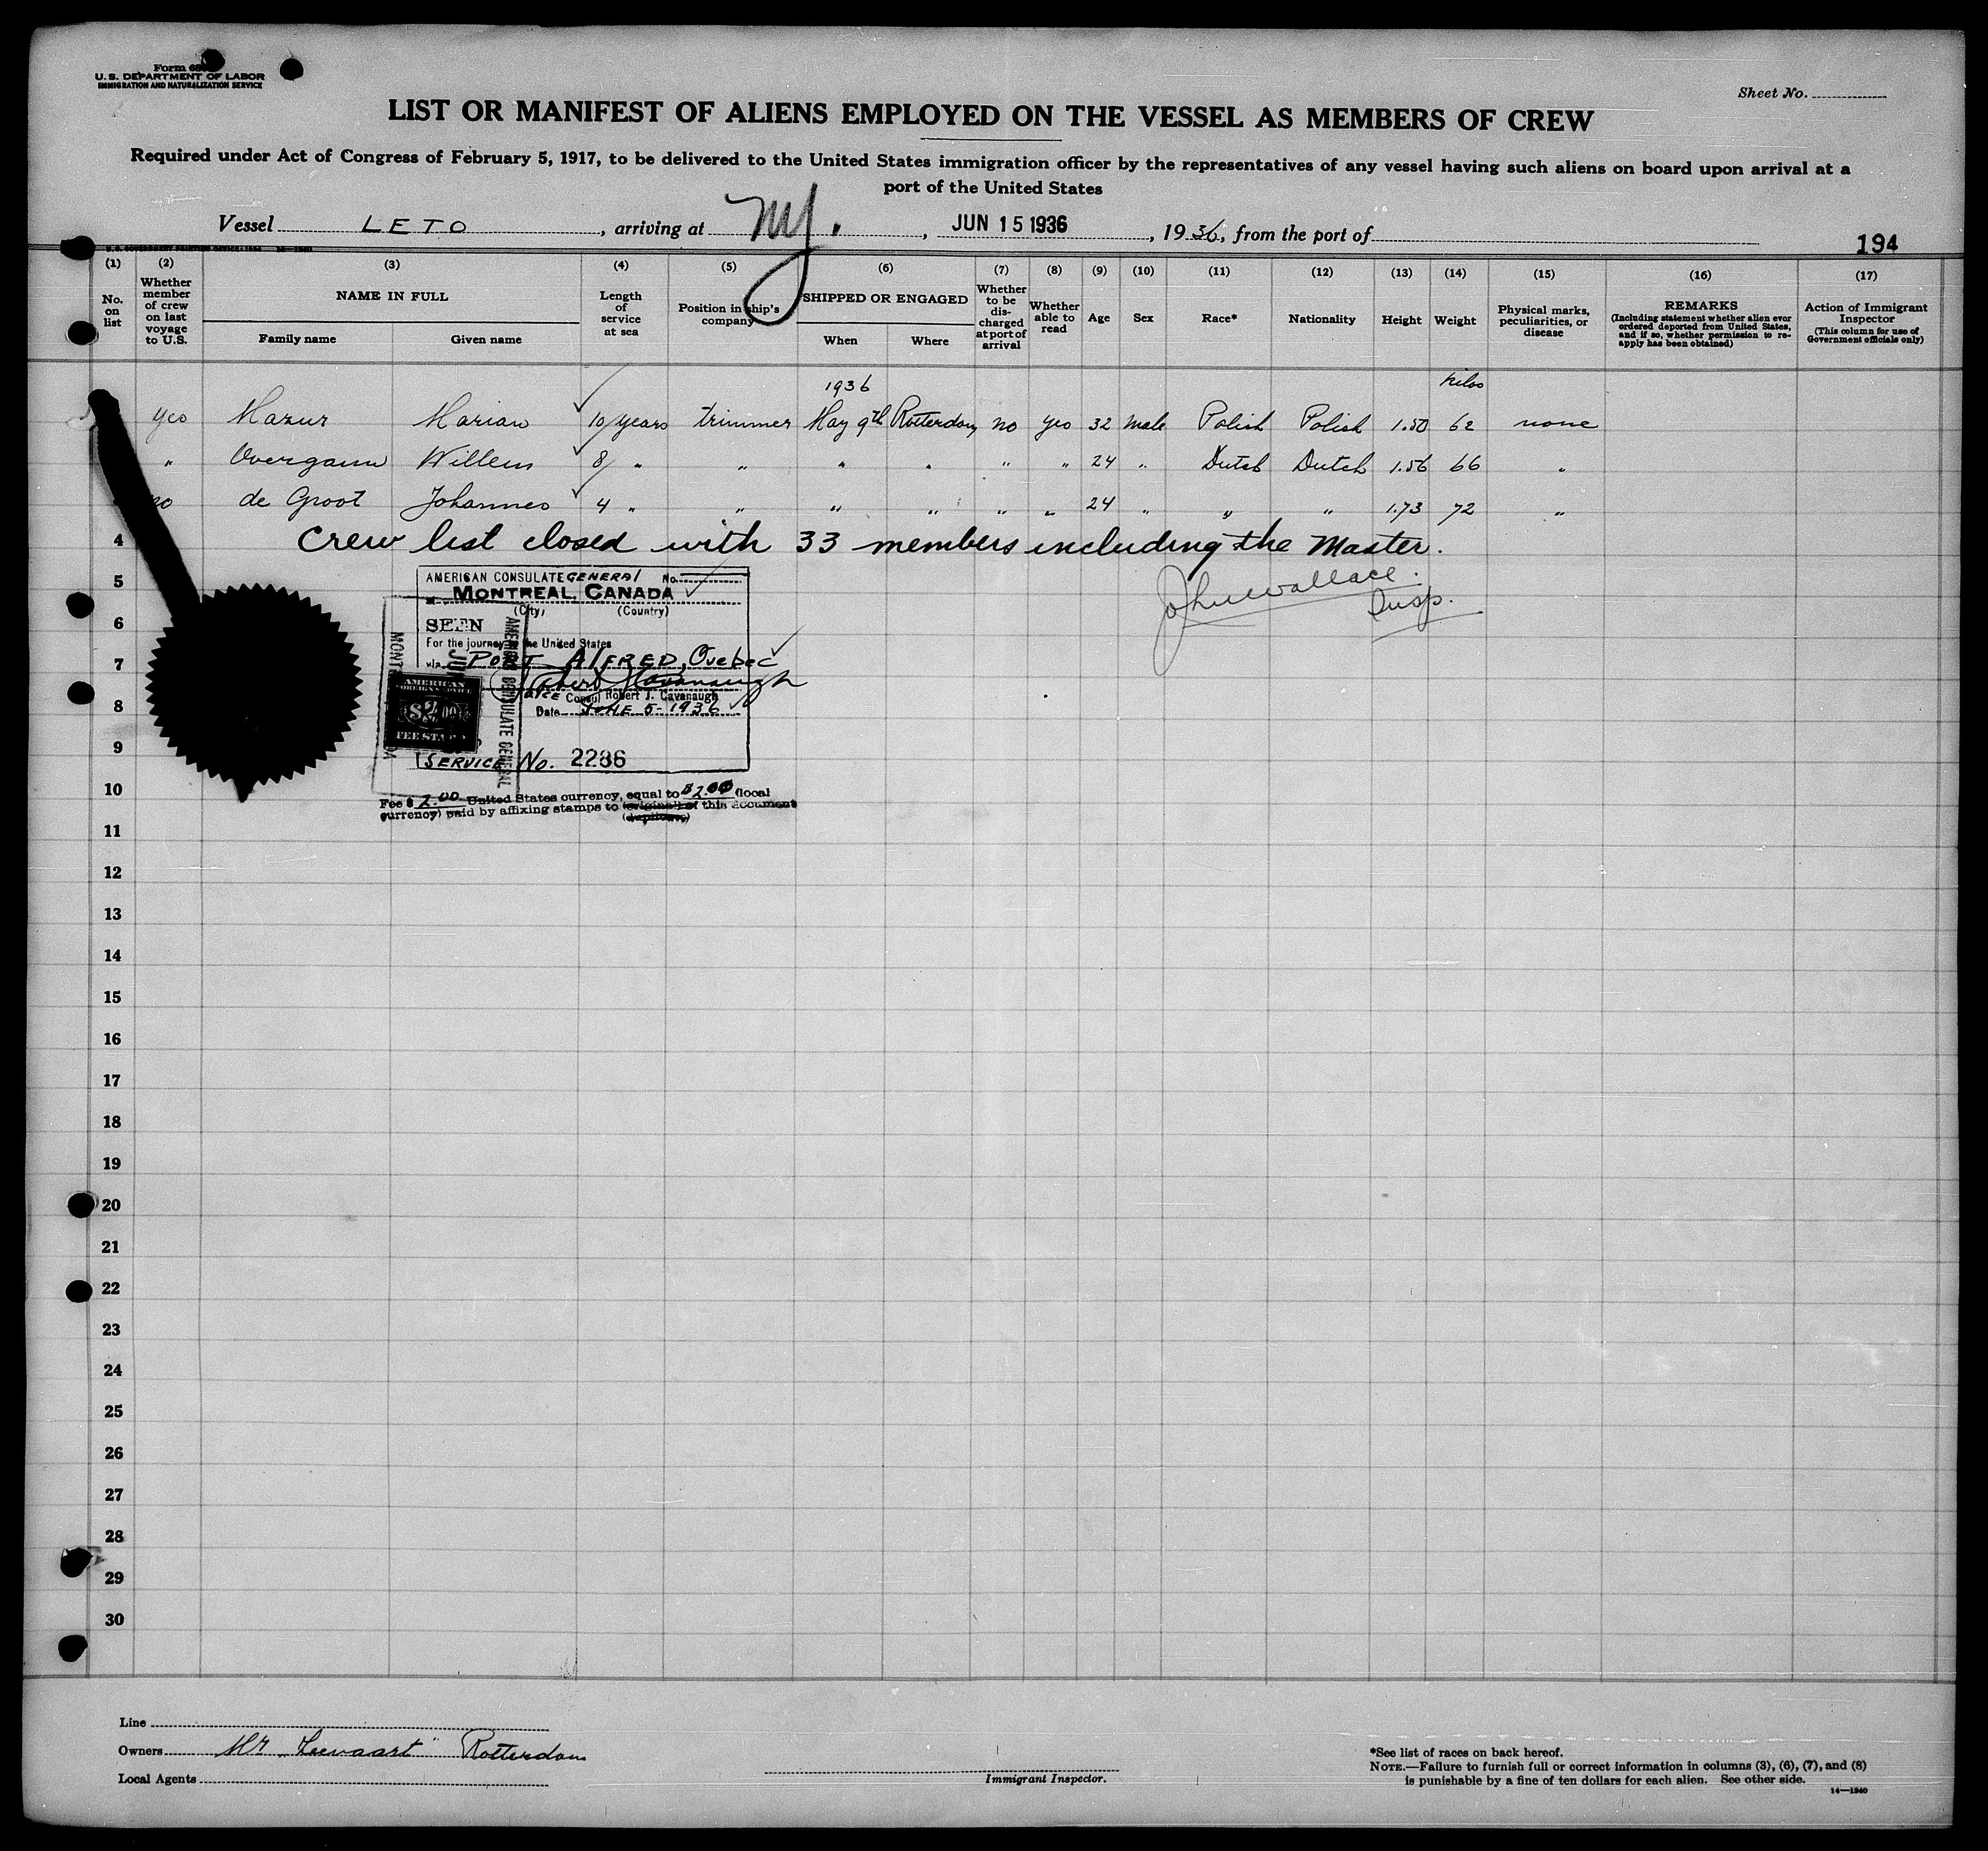 Form 68
U. S. DEPARTMENT OF LABOR
IMMIGRATION AND NATURALIZATION SERVICE
Sheet No.
LIST OR MANIFEST OF ALIENS EMPLOYED ON THE VESSEL AS MEMBERS OF CREW
Required under Act of Congress of February 5, 1917, to be delivered to the United States immigration officer by the representatives of any vessel having such aliens on board upon arrival at a
port of the United States
Vessel LETO, arriving at NY., JUN 15 1936, 1936, from the port of
194
(1) (2) (3) (4) (5) (6) (7) (8) (9) (10) (11) (12) (13) (14) (15) (16) (17)
No. on list
Whether member of crew on last voyage to U.S.
NAME IN FULL
Family name Given name
Length of service at sea
Position in ship's company
SHIPPED OR ENGAGED
When Where
Whether to be discharged at port of arrival
Whether able to read
Age
Sex
Race*
Nationality
Height
Weight
Physical marks, peculiarities, or disease
REMARKS
(Including statement whether alien ever ordered deported from United States, and if so, whether permission to re-apply has been obtained)
Action of Immigrant Inspector
(This column for use of Government officials only)
1936 kilos
yes Mazur Marian 10 years trimmer May 9th Rotterdam no yes 32 male Polish Polish 1.80 62 none
" Willem 8 " " " " " " 24 " Dutch Dutch 1.56 66 "
no de Groot Johannes 4 " " " " " " 24 " " " 1.73 72 "
4 Crew list closed with 33 members including the Master.
John Wallace.
Insp.
5
AMERICAN CONSULATE GENERAL No.
MONTREAL, CANADA
(City) (Country)
6
SEEN
For the journey to the United States
7
via PORT ALFRED, Quebec
Robert J. Cavanaugh
Vice Consul Robert J. Cavanaugh
8
Date JUNE 5-1936
AMERICAN
FOREIGN SERVICE
$2.00
FEE STAMP
AMERICAN CONSULATE GENERAL
9
SERVICE No. 2286
10
Fee $ 2.00 United States currency, equal to $2.00 (local
currency) paid by affixing stamps to (original) of this document
(duplicate)
11
12
13
14
15
16
17
18
19
20
21
22
23
24
25
26
27
28
29
30
Line
Owners Rotterdam
Local Agents
Immigrant Inspector.
*See list of races on back hereof.
NOTE.—Failure to furnish full or correct information in columns (3), (6), (7), and (8)
is punishable by a fine of ten dollars for each alien. See other side.
14—1240